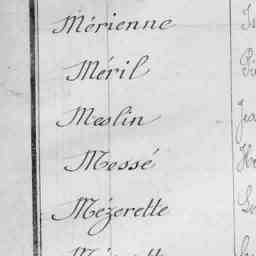 Mérienne
Méril
Meslin
Messé
Mézerette